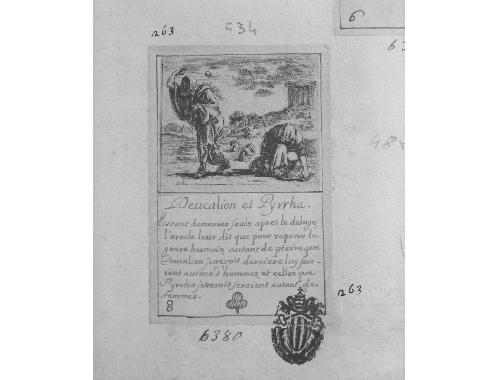 6
263
534
6
Deucalion et Pyrrha.
Estant demeures seuls apres le deluge
l'oracle leur dit que pour reparer le
genre humain, autant de pierre que
Deucalion jetteroit derriere luy sero-
ient autant d'hommes, et celles que
Pyrrha jetteroit seroient autant de
femmes.
8
263
6380